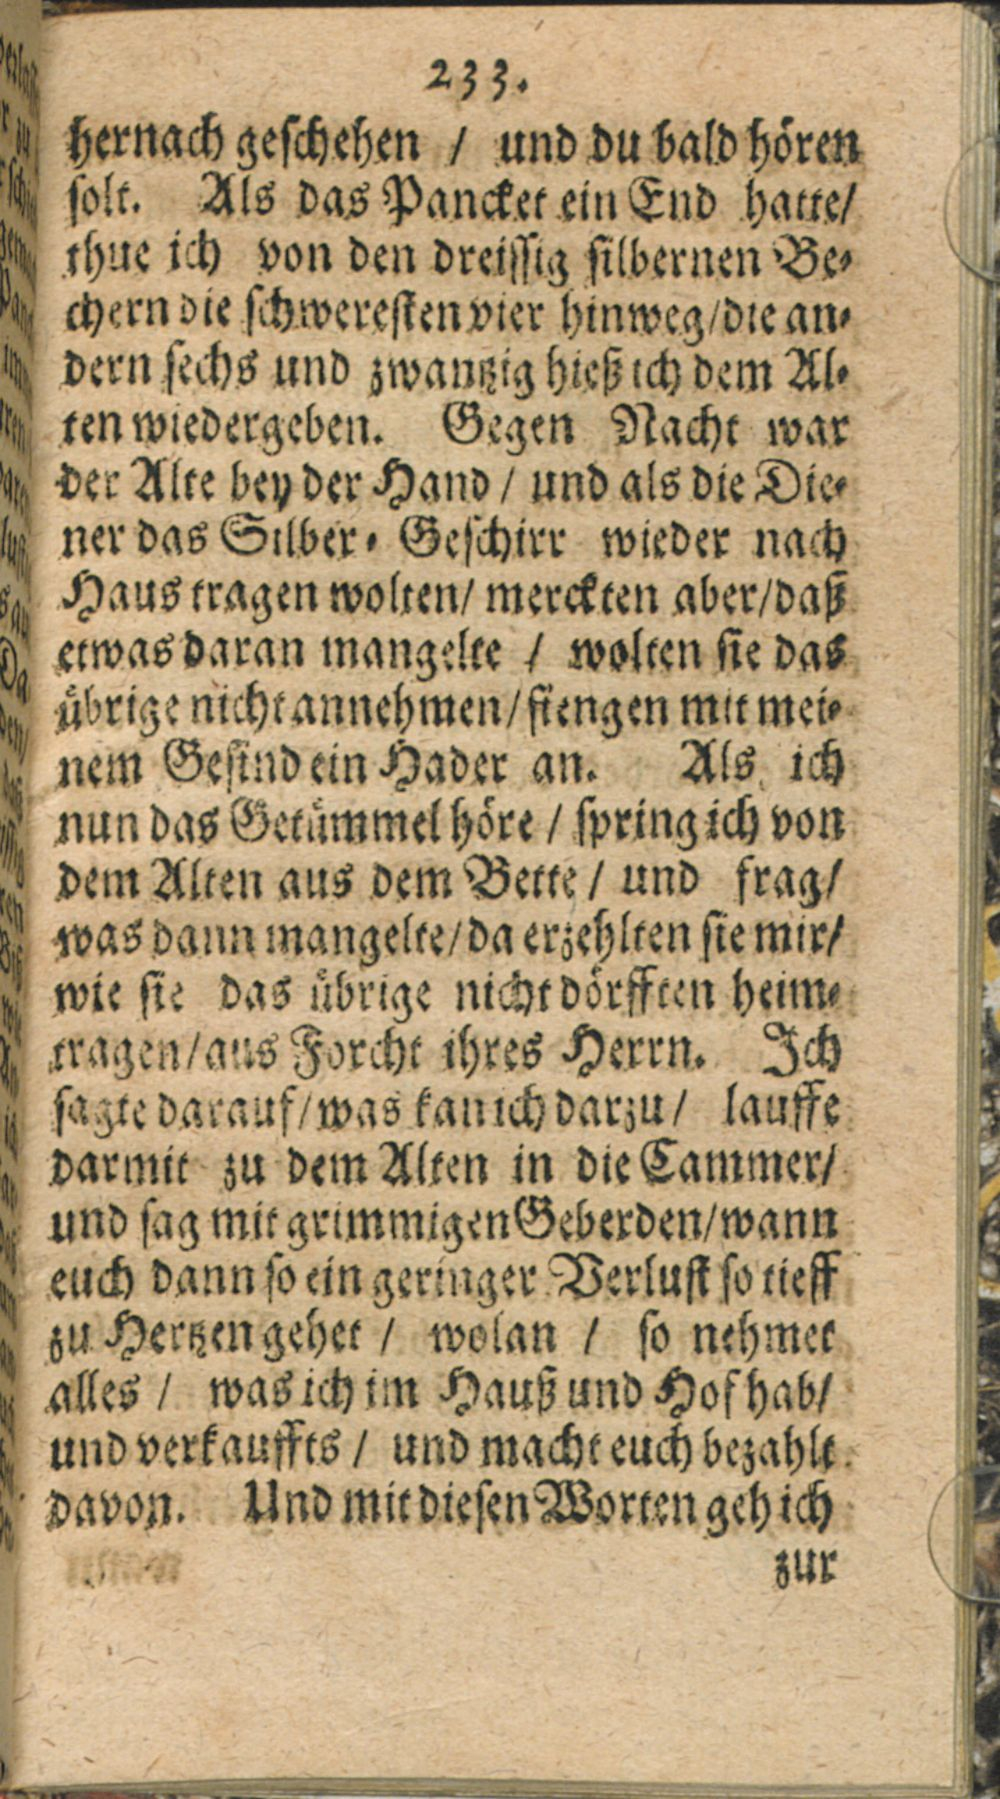 233.
hernach geschehen / und du bald hören
solt. Als das Pancket ein End hatte/
thue ich von den dreissig silbernen Be-
chern die schweresten vier hinweg/die an-
dern sechs und zwantzig hieß ich dem Al-
ten wiedergeben. Gegen Nacht war
der Alte bey der Hand / und als die Die-
ner das Silber-Geschirr wieder nach
Haus tragen wolten/ merckten aber/daß
etwas daran mangelte / wolten sie das
übrige nicht annehmen/fiengen mit mei-
nem Gesind ein Hader an. Als ich
nun das Getümmel höre / spring ich von
dem Alten aus dem Bette / und frag/
was dann mangelte/da erzehlten sie mir/
wie sie das übrige nicht dörfften heim-
tragen/aus Forcht ihres Herrn. Ich
sagte darauf/was kan ich darzu/ lauffe
darmit zu dem Alten in die Cammer/
und sag mit grimmigen Geberden/wann
euch dann so ein geringer Verlust so tieff
zu Hertzen gehet / wolan / so nehmet
alles / was ich im Hauß und Hof hab/
und verkauffts / und macht euch bezahlt
davon. Und mit diesen Worten geh ich
zur